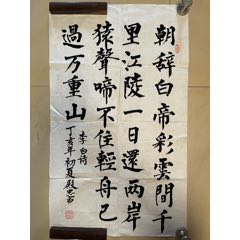 朝辞白帝彩雲間千
里江陵一日還兩岸
猿聲啼不住輕舟已
過万重山
李白诗
丁亥年初夏